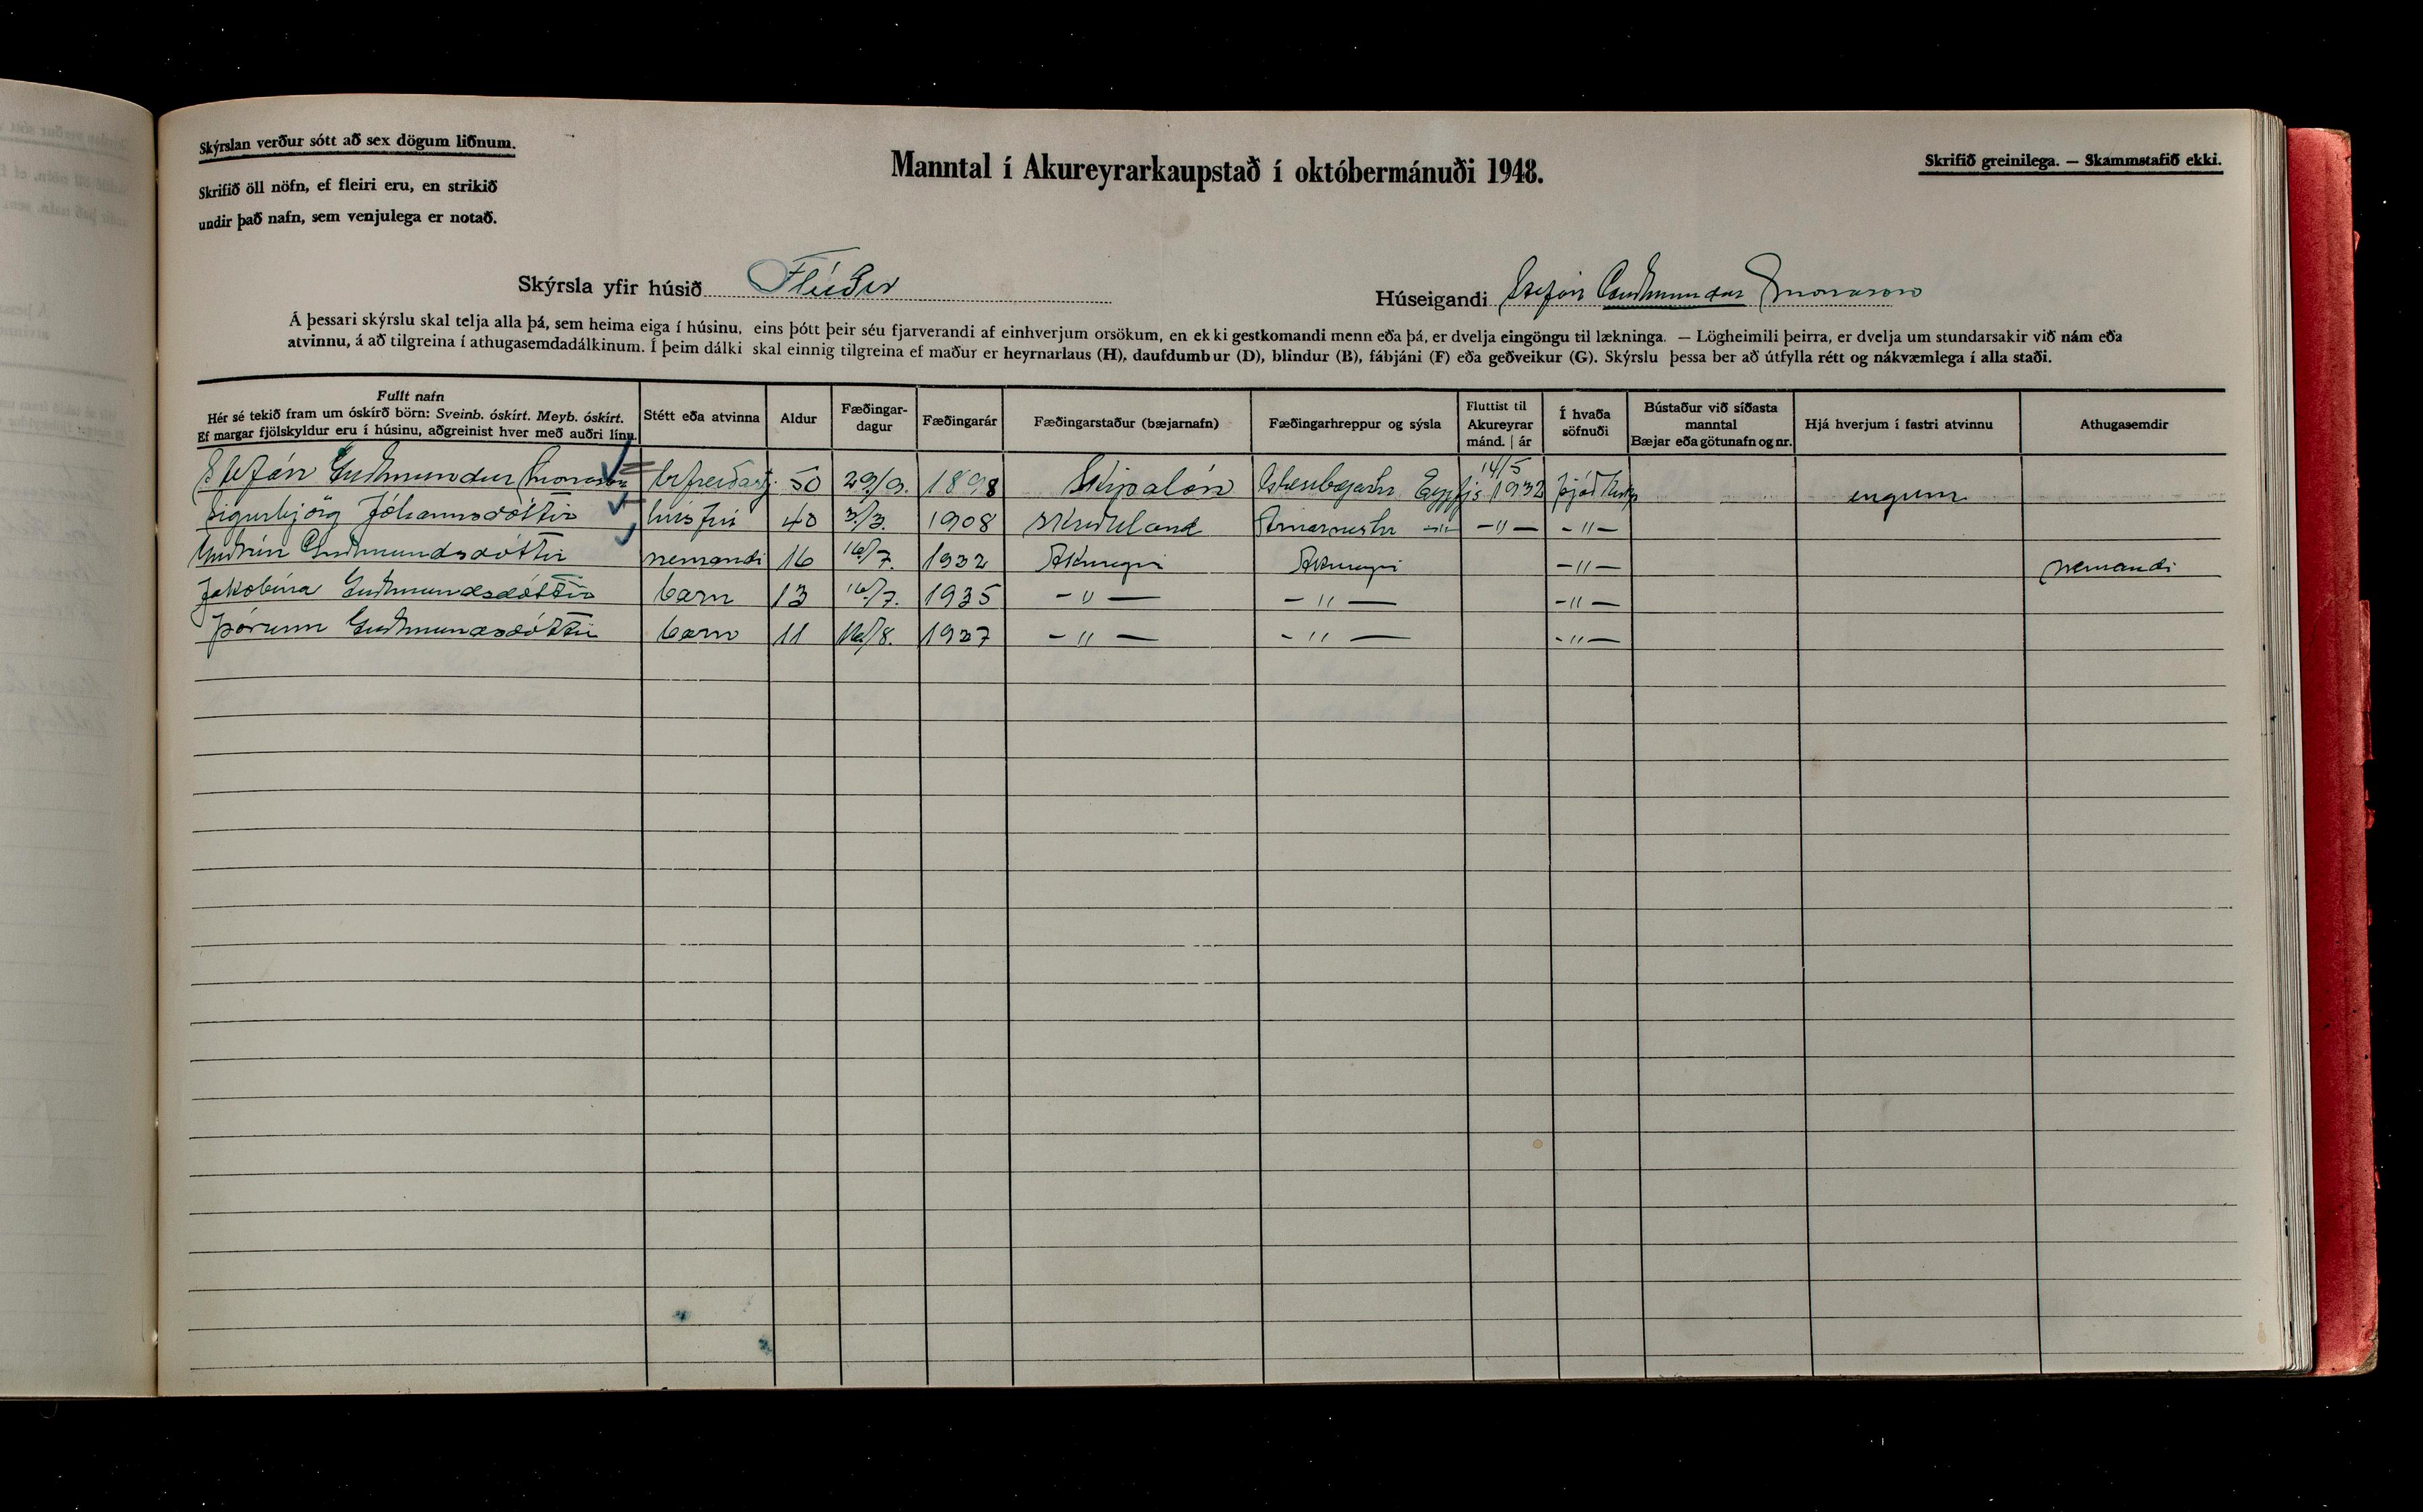 Skýrslan verður sótt að sex dögum liðnum.
Skrifið öll nöfn, ef fleiri eru, en strikið
undir það nafn, sem venjulega er notað.
Manntal í Akureyrarkaupstað í októbermánuði 1948.
Skrifið greinilega. — Skammstafið ekki.
Skýrsla yfir húsið Flúðir
Húseigandi Stefán Guðmundur Snorrason
Á þessari skýrslu skal telja alla þá, sem heima eiga í húsinu, eins þótt þeir séu fjarverandi af einhverjum orsökum, en ekki gestkomandi menn eða þá, er dvelja eingöngu til lækninga. — Lögheimili þeirra, er dvelja um stundarsakir við nám eða
atvinnu, á að tilgreina í athugasemdadálkinum. Í þeim dálki skal einnig tilgreina ef maður er heyrnarlaus (H), daufdumbur (D), blindur (B), fábjáni (F) eða geðveikur (G). Skýrslu þessa ber að útfylla rétt og nákvæmlega í alla staði.
Fullt nafn
Hér sé tekið fram um óskírð börn: Sveinb. óskírt. Meyb. óskírt.
Ef margar fjölskyldur eru í húsinu, aðgreinist hver með auðri línu.
Stétt eða atvinna
Aldur
Fæðingar-
dagur
Fæðingarár
Fæðingarstaður (bæjarnafn)
Fæðingarhreppur og sýsla
Fluttist til
Akureyrar
mánd. | ár
Í hvaða
söfnuði
Bústaður við síðasta
manntal
Bæjar eða götunafn og nr.
Hjá hverjum í fastri atvinnu
Athugasemdir
Stefán Guðmundur Snorrason bifreiðastj. 50 29/9. 1898 Skipalón Eyjfjs 14/5 1932 þjóðkirkj engum
Sigurbjörg Jóhannsdóttir húsfrú 40 3/3. 1908 Arnarneshr —〃— —〃— —〃—
Guðrún Guðmundsdóttir nemandi 16 16/7. 1932 Akureyri Akureyri —〃— nemandi
Jakobína Guðmundsdóttir barn 13 16/7. 1935 —〃— —〃— —〃—
Þórunn Guðmundsdóttir barn 11 1937 —〃— —〃— —〃—